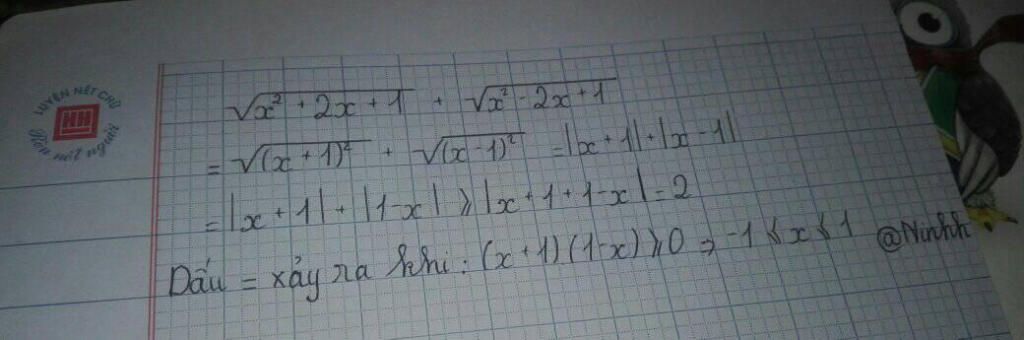 LUYỆN NÉT CHỮ
HH
Rèn nết người
√(x² + 2x + 1) + √(x² - 2x + 1)
= √((x + 1)²) + √((x - 1)²) = |x + 1| + |x - 1|
= |x + 1| + |1 - x| ⩾ |x + 1 + 1 - x| = 2
Dấu = xảy ra khi : (x + 1)(1 - x) ⩾ 0 ⇒ -1 ⩽ x ⩽ 1 @Ninhh